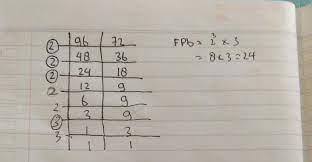 ② 96 72
② 48 36
② 24 18
2 12 9
2 6 9
③ 3 9
3 1 3
1 1
FPB = 2³ × 3
= 8 × 3 = 24